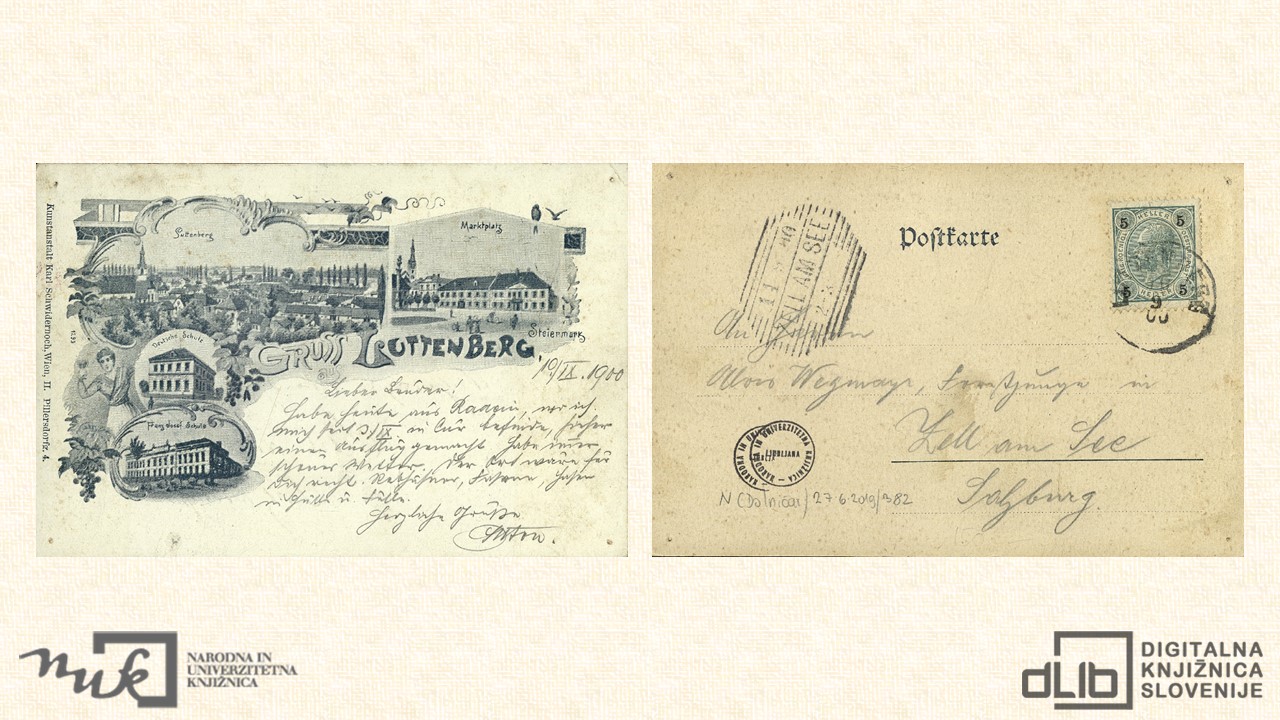 Kunstanstalt Karl Schwidernoch, Wien, II. Pillersdorfg. 4.
6199
Luttenberg
Marktplatz
Steiermark
Deutsche Schule
Franz Josef Schule
GRUSS
LUTTENBERG,
10/IX. 1900
Lieber Bruder!
Habe heute aus wo ich
mich seit 3/IX in Cur befinde, hieher
einen Ausflug gemacht. Habe immer
schönes Wetter. Der Ort wäre für
Dich recht. Rebhühner, Fasane, Hasen
in Hülle u. Fülle.
Herzliche Grüße
Anton.
Postkarte
ZELL AM SEE
5 HELLER 5
5 5
9
00
An
Alois Wegmayr, in
Zell am See
Salzburg.
NARODNA IN UNIVERZITETNA KNJIŽNICA
LJUBLJANA
N (Dolničar) 27 6.2019/382
nuk
NARODNA IN
UNIVERZITETNA
KNJIŽNICA
dLib
DIGITALNA
KNJIŽNICA
SLOVENIJE